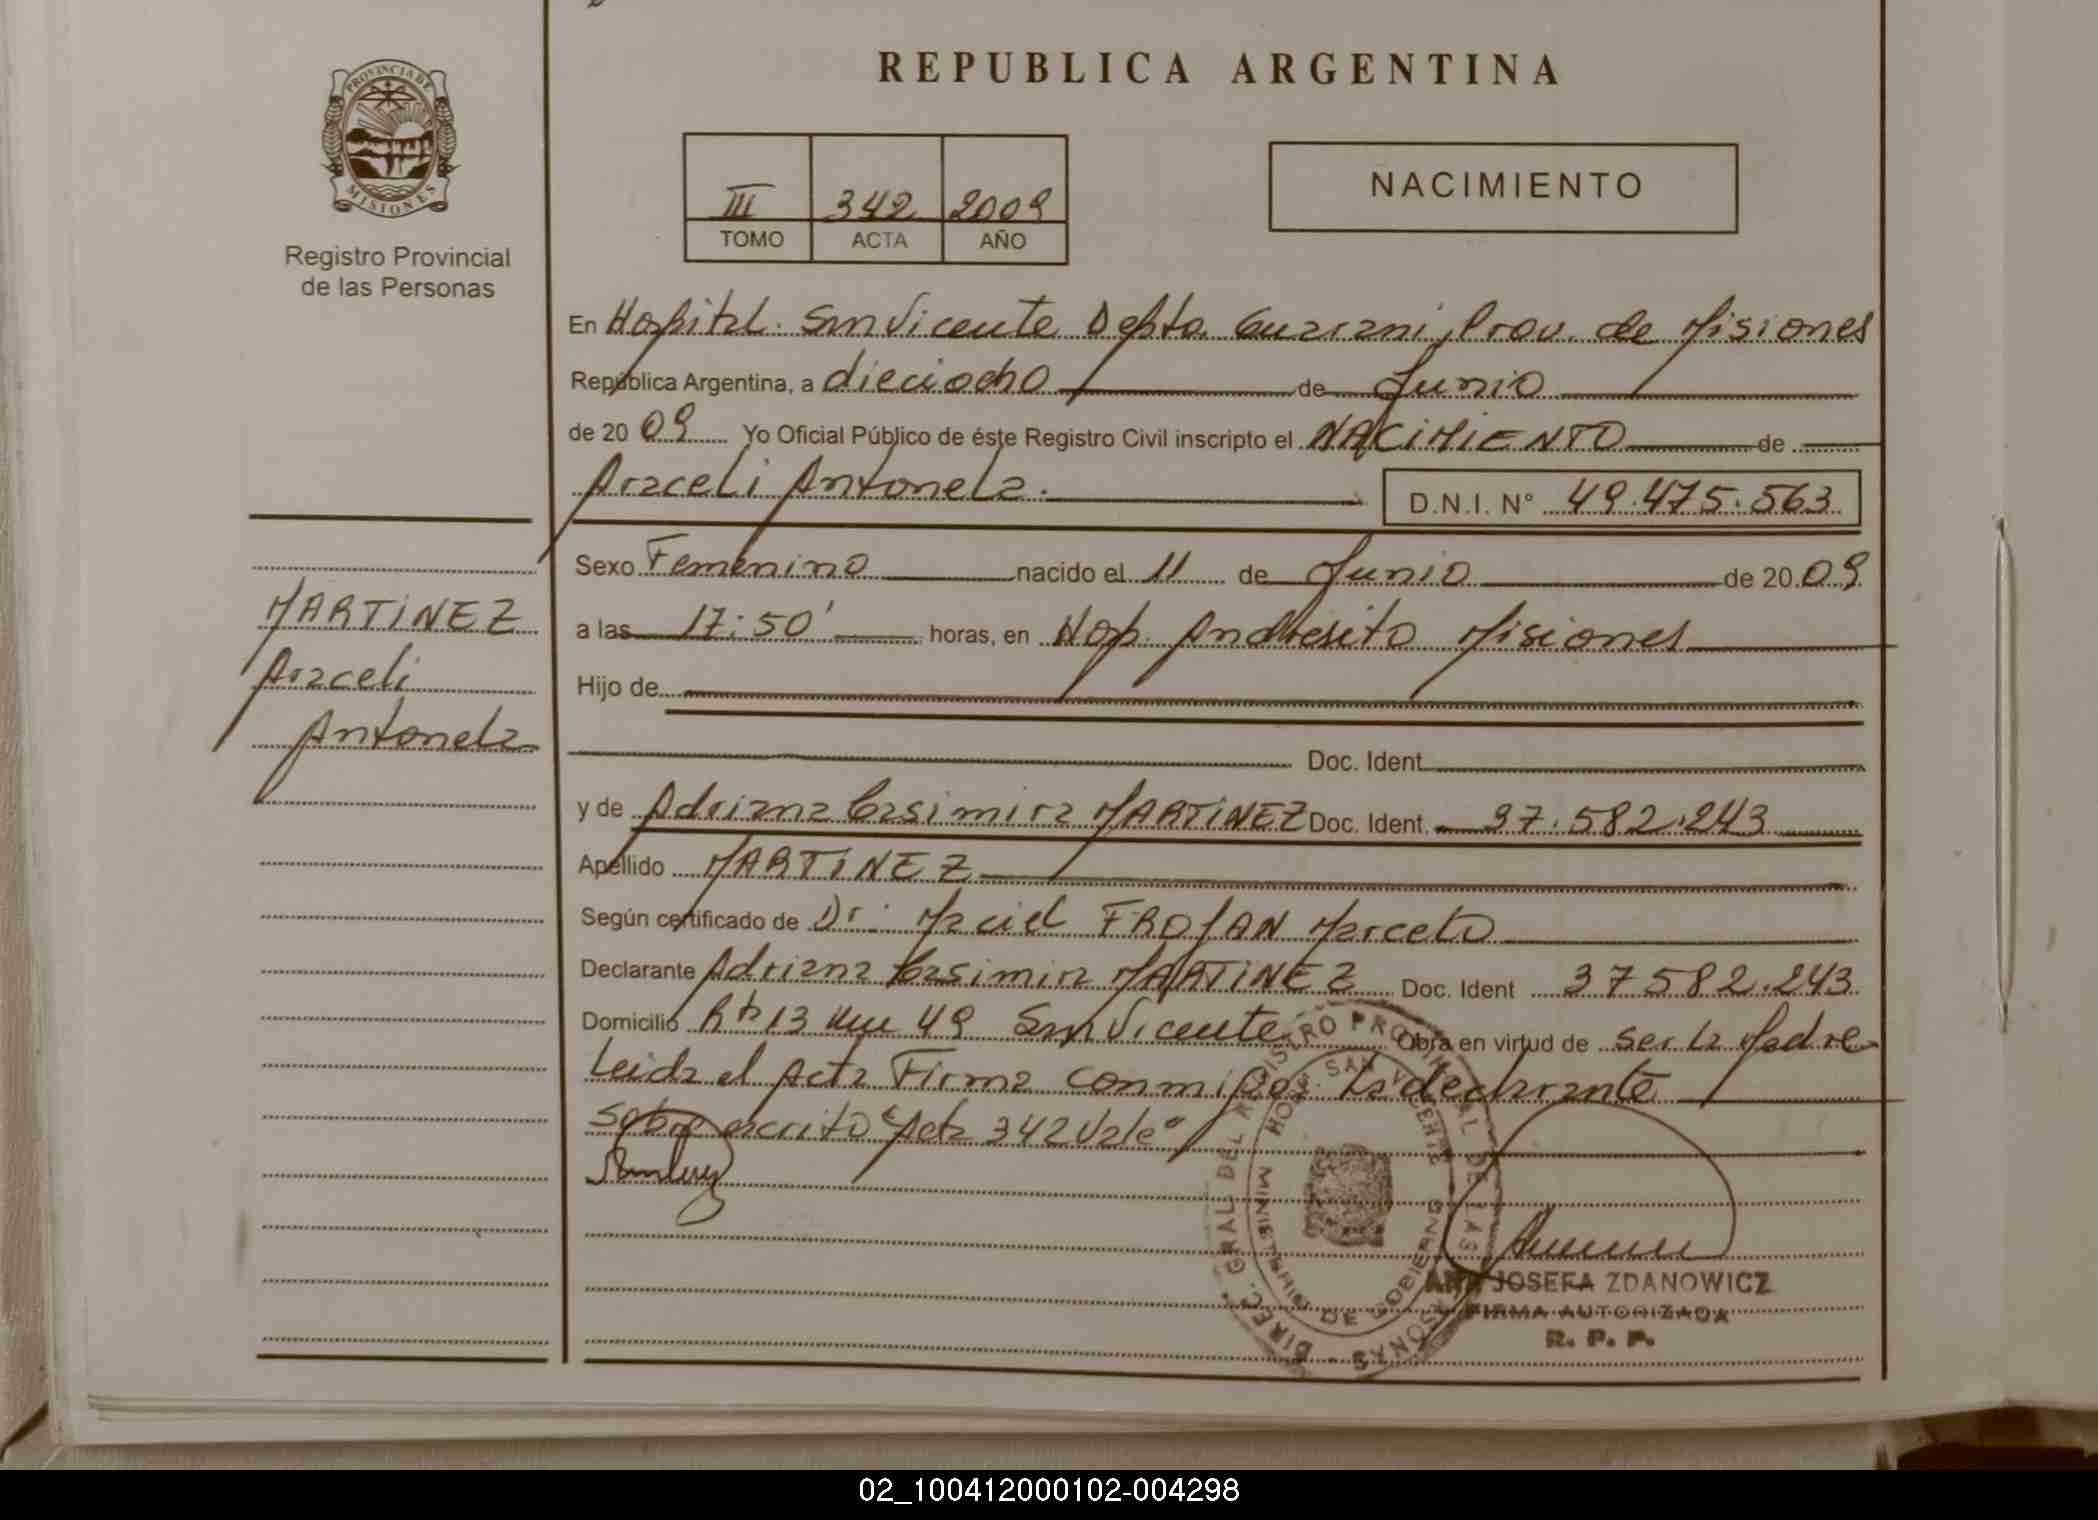 REPUBLICA ARGENTINA
PROVINCIA DE
MISIONES
Registro Provincial
de las Personas
III 342 2009
TOMO ACTA AÑO
NACIMIENTO
En Hospital San Vicente Depto Guarani Prov. de Misiones
República Argentina, a dieciocho de Junio
de 2009 Yo Oficial Público de éste Registro Civil inscripto el NACIMIENTO de
Araceli Antonela. D.N.I. N° 49.475.563
Sexo Femenino nacido el 11 de Junio de 2009
a las 17:50' horas, en Hosp. Andresito Misiones
Hijo de
Doc. Ident.
y de Adriana Casimira MARTiNEZ Doc. Ident. 37.582.243
Apellido MARTiNEZ
Según certificado de Dr: Maciel FROJAN Marcelo
Declarante Adriana Casimira MARTiNEZ Doc. Ident 37582.243
Domicilio Rta 13 Km 49 San Vicente Obra en virtud de ser la Madre
Leida el Acta Firma conmigo la declarante
Sobre escrito "Acta 342 Vale"
MARTiNEZ
Araceli
Antonela
DIREC. GRAL. DEL REGISTRO PROVINCIAL DE LAS PERSONAS
HOSP. SAN VICENTE
MINISTERIO DE GOBIERNO
ANA JOSEFA ZDANOWICZ
FIRMA AUTORIZADA
R. P. P.
02_100412000102-004298